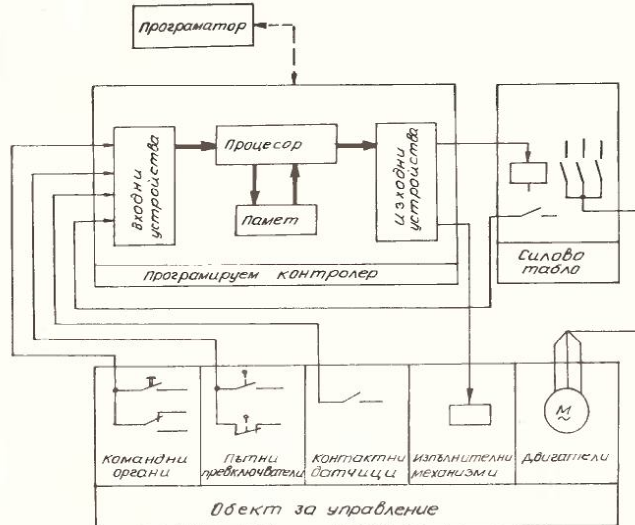 Програматор
Входни
устройства
Процесор
Памет
Изходни
устройства
Програмируем контролер
Силово
табло
Командни
органи
Пътни
превключватели
Контактни
датчици
Изпълнителни
механизми
М
~
Двигатели
Обект за управление